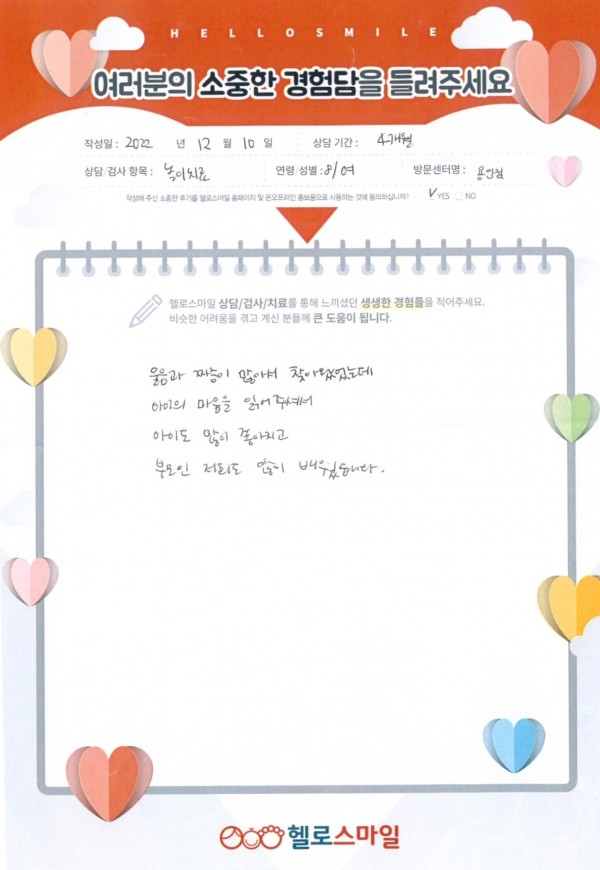 HELLOSMILE
여러분의 소중한 경험담을 들려주세요
작성일 : 2022 년 12 월 10 일 상담 기간 : 4개월
상담·검사 항목 : 놀이치료 연령/성별 : 8/여 방문센터명 : 용인점
작성해 주신 소중한 후기를 헬로스마일 홈페이지 및 온오프라인 홍보용으로 사용하는 것에 동의하십니까? V YES NO
헬로스마일 상담/검사/치료를 통해 느끼셨던 생생한 경험들을 적어주세요.
비슷한 어려움을 겪고 계신 분들께 큰 도움이 됩니다.
울음과 짜증이 많아서 찾아왔었는데
아이의 마음을 읽어주셔서
아이도 많이 좋아지고
부모인 저희도 많이 배웠습니다.
헬로스마일